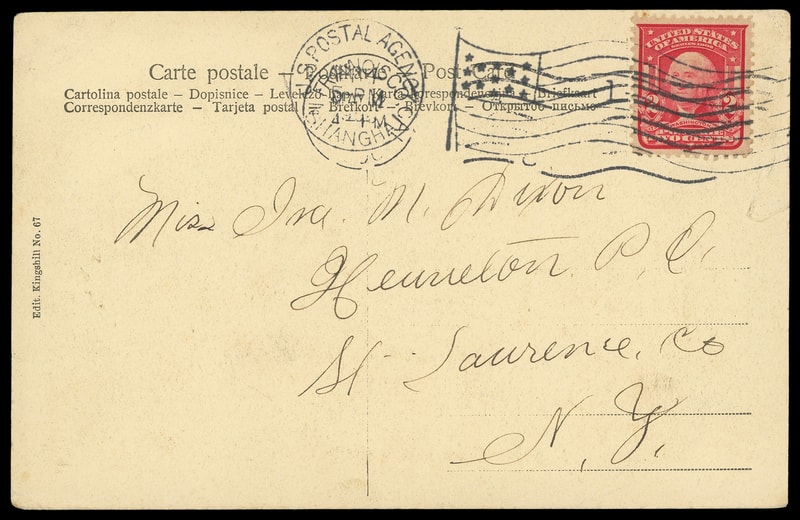 Carte postale – Postkarte – Post Card
Cartolina postale – Dopisnice – Levelező-Lap – Karta Korrespondencyjna – Briefkaart
Correspondenzkarte – Tarjeta postal – Brefkort – Brevkort – Открытое письмо
U.S. POSTAL AGENCY
SHANGHAI
UNITED STATES
OF AMERICA
WASHINGTON
2 2
TWO CENTS
Miss Ina. M. Dixon
Heuvelton P. O.
St. Lawrence, Co
N. Y.
Edit. Kingshill No. 67